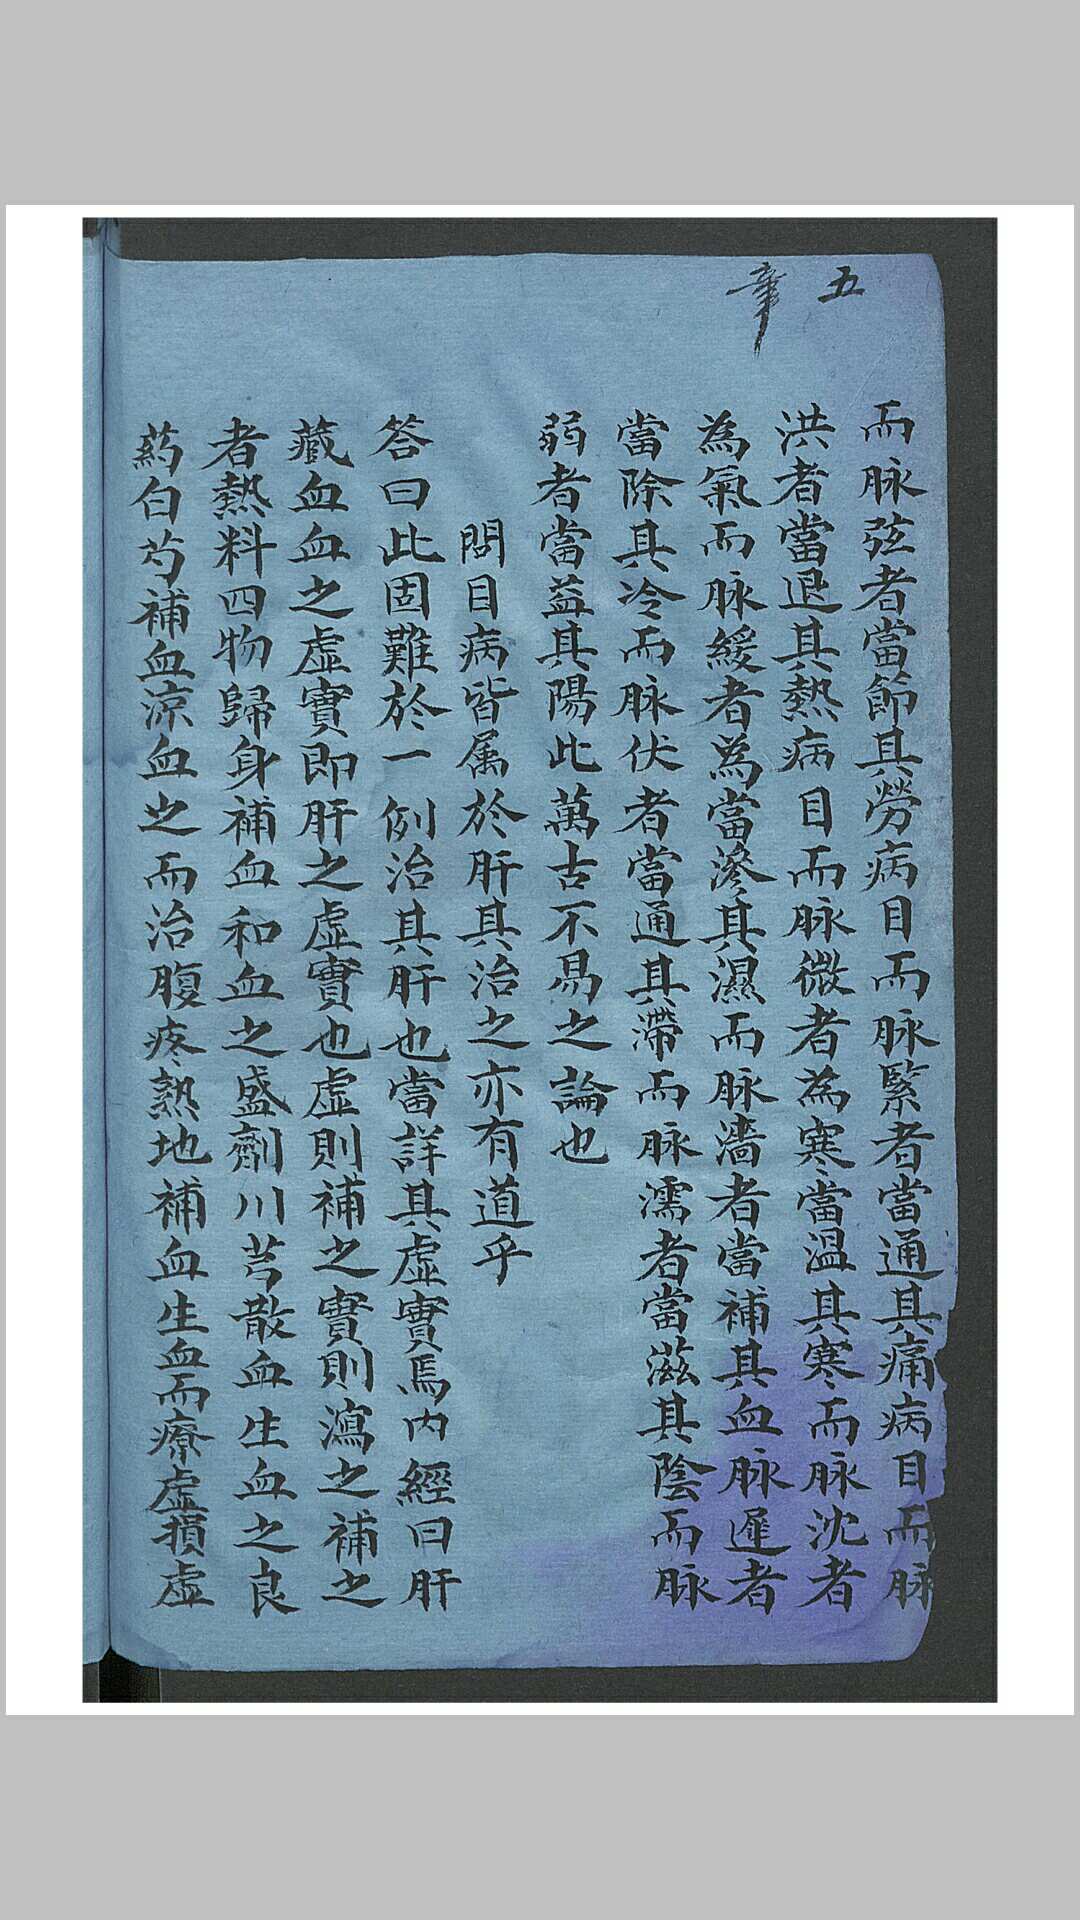 五
章
而脉弦者當節其勞病目而脉緊者當通其痛病目而脉
洪者當退其熱病目而脉微者為寒當温其寒而脉沈者
為氣而脉緩者為當滲其濕而脉濇者當補其血脉遲者
當除其冷而脉伏者當通其滯而脉濡者當滋其陰而脉
弱者當益其陽此萬古不易之論也
問目病皆属於肝其治之亦有道乎
答曰此固難於一例治其肝也當詳其虛實焉内經曰肝
藏血血之虛實即肝之虛實也虛則補之實則瀉之補之
者熱料四物歸身補血和血之盛劑川芎散血生血之良
藥白芍補血涼血之而治腹疼熟地補血生血而療虛損虛